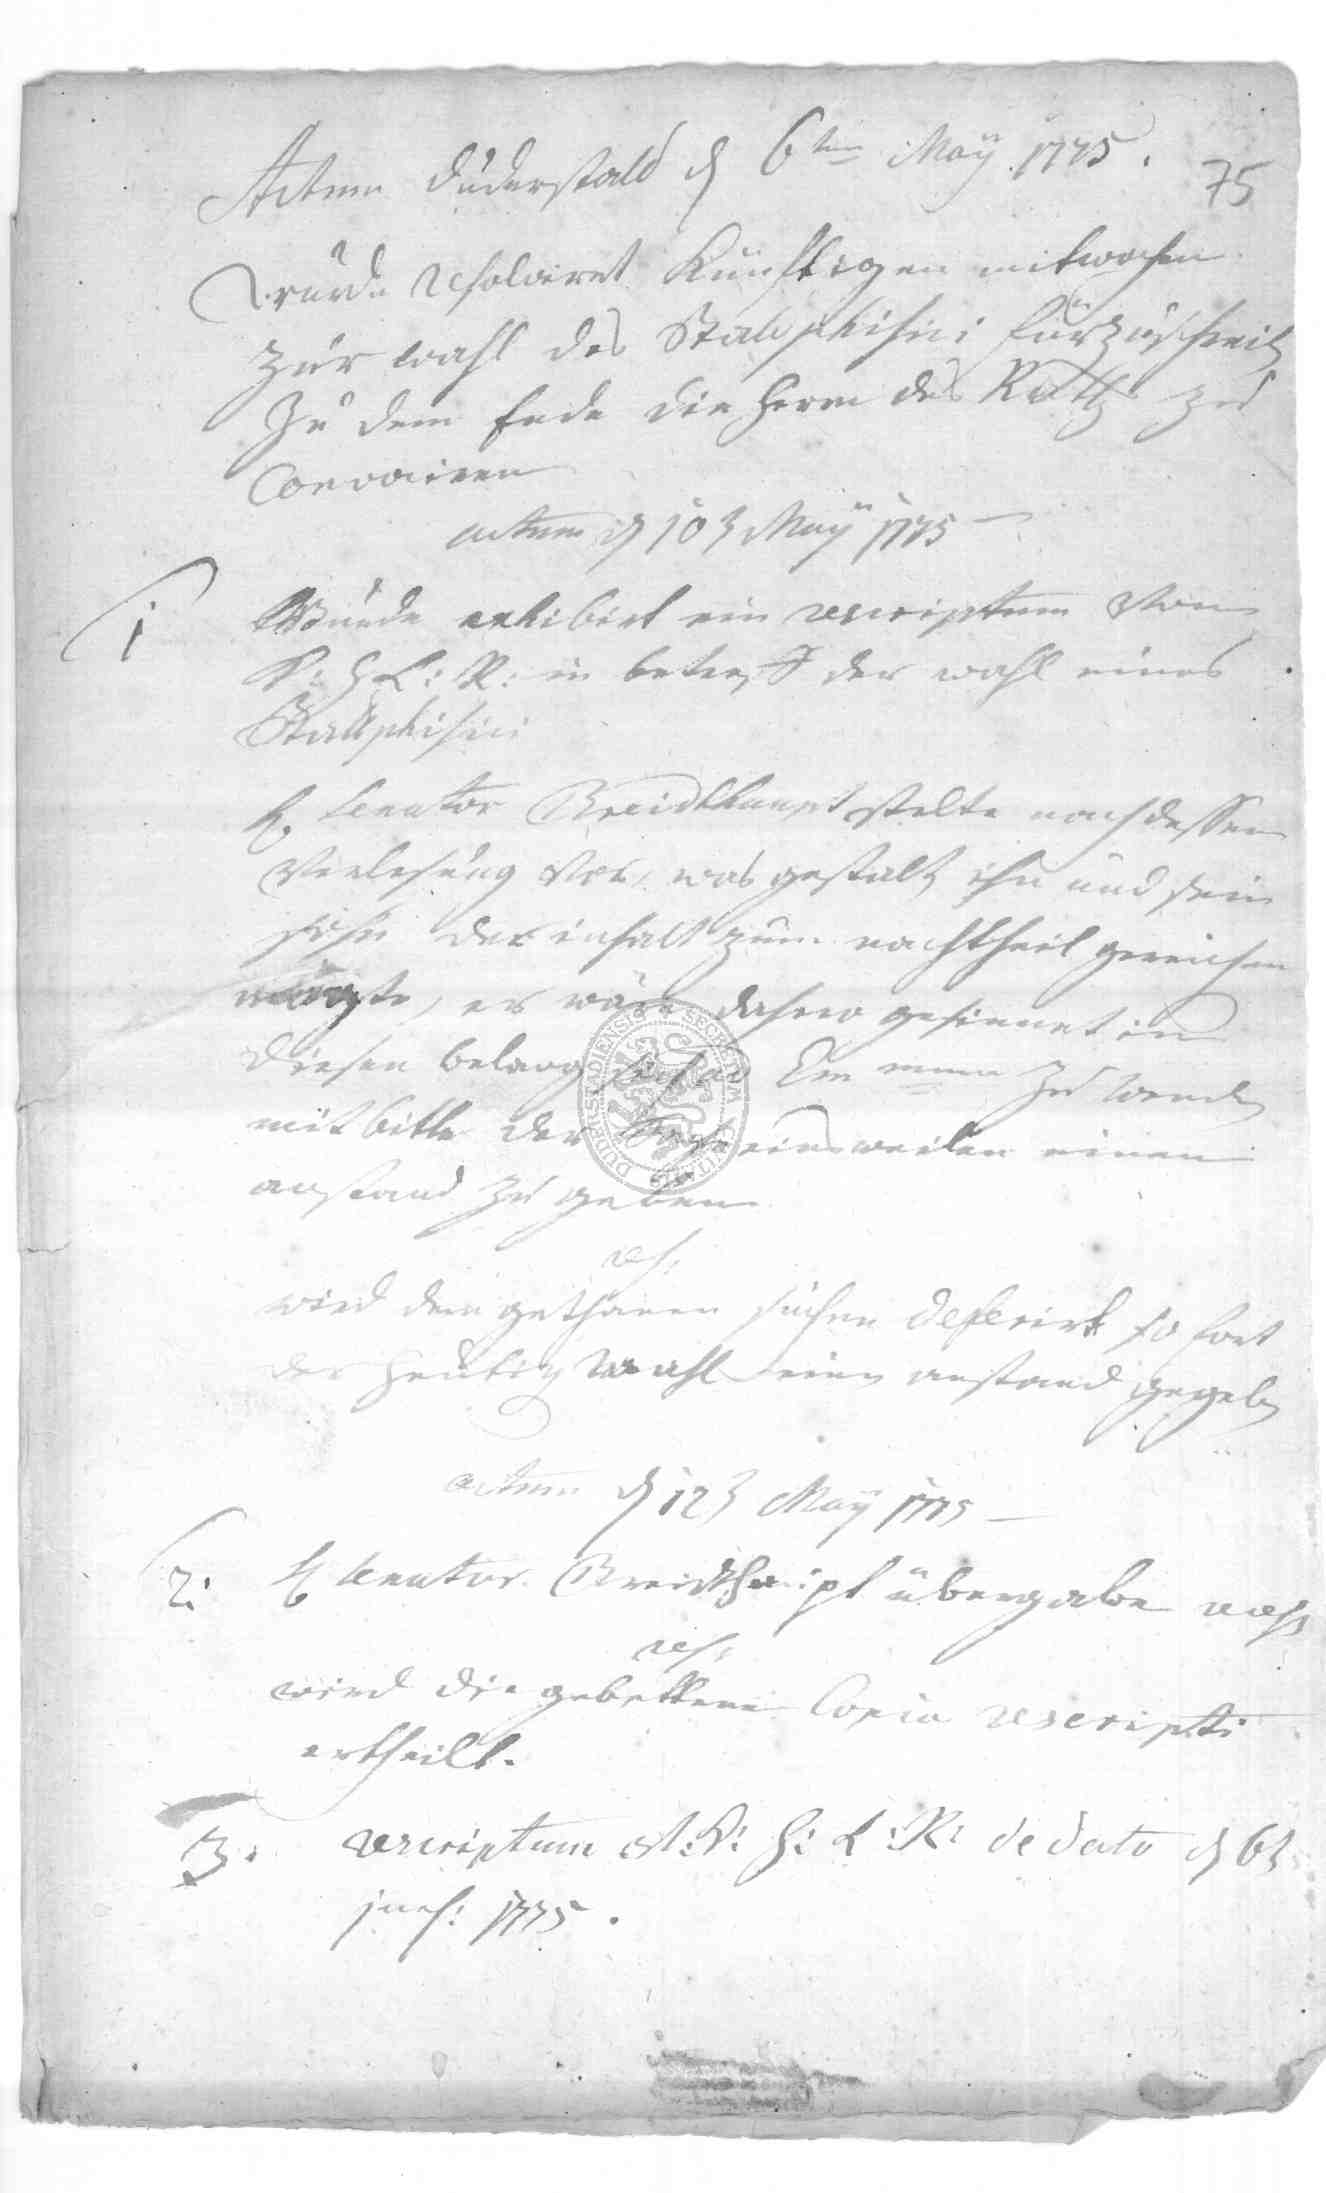 Actum Duderstadt d 6ten Maÿ 1775.
75
Wurde resolviret Künftigen mitwochen
zur wahl des Stadtphisici fürzuschreiten
Zu dem Ende die Herrn des Raths zu
Convociren
actum d 10t Maÿ 1775
1
Wurde exhibirt ein rescriptum von
K: H L: R: in betreff der wahl eines
Stadtphisici
H Senator Breidthaupt stelte nach dessen
Verlesung vor, was gestalt ihn und sein
sohn der inhalt zum nachtheil gereichen
mögte, er wäre dahero gesinnet in
diesen belang sich an Em. zu wenden
mit bitte der Sache einsweilen einen
anstand zu geben
res:
wird dem gethanen suchen deferirt so fort
der heutigen wahl einen anstand gegeben
actum d 12t Maÿ 1775
2.
H Senator Breidthaupt übergabe
res:
wird die gebettene Copia rescripti
ertheilt.
3.
rescriptum K: H: L: R: de dato d 6t
1775.
DUDERSTADIENSIS SECRETUM CIVITATIS